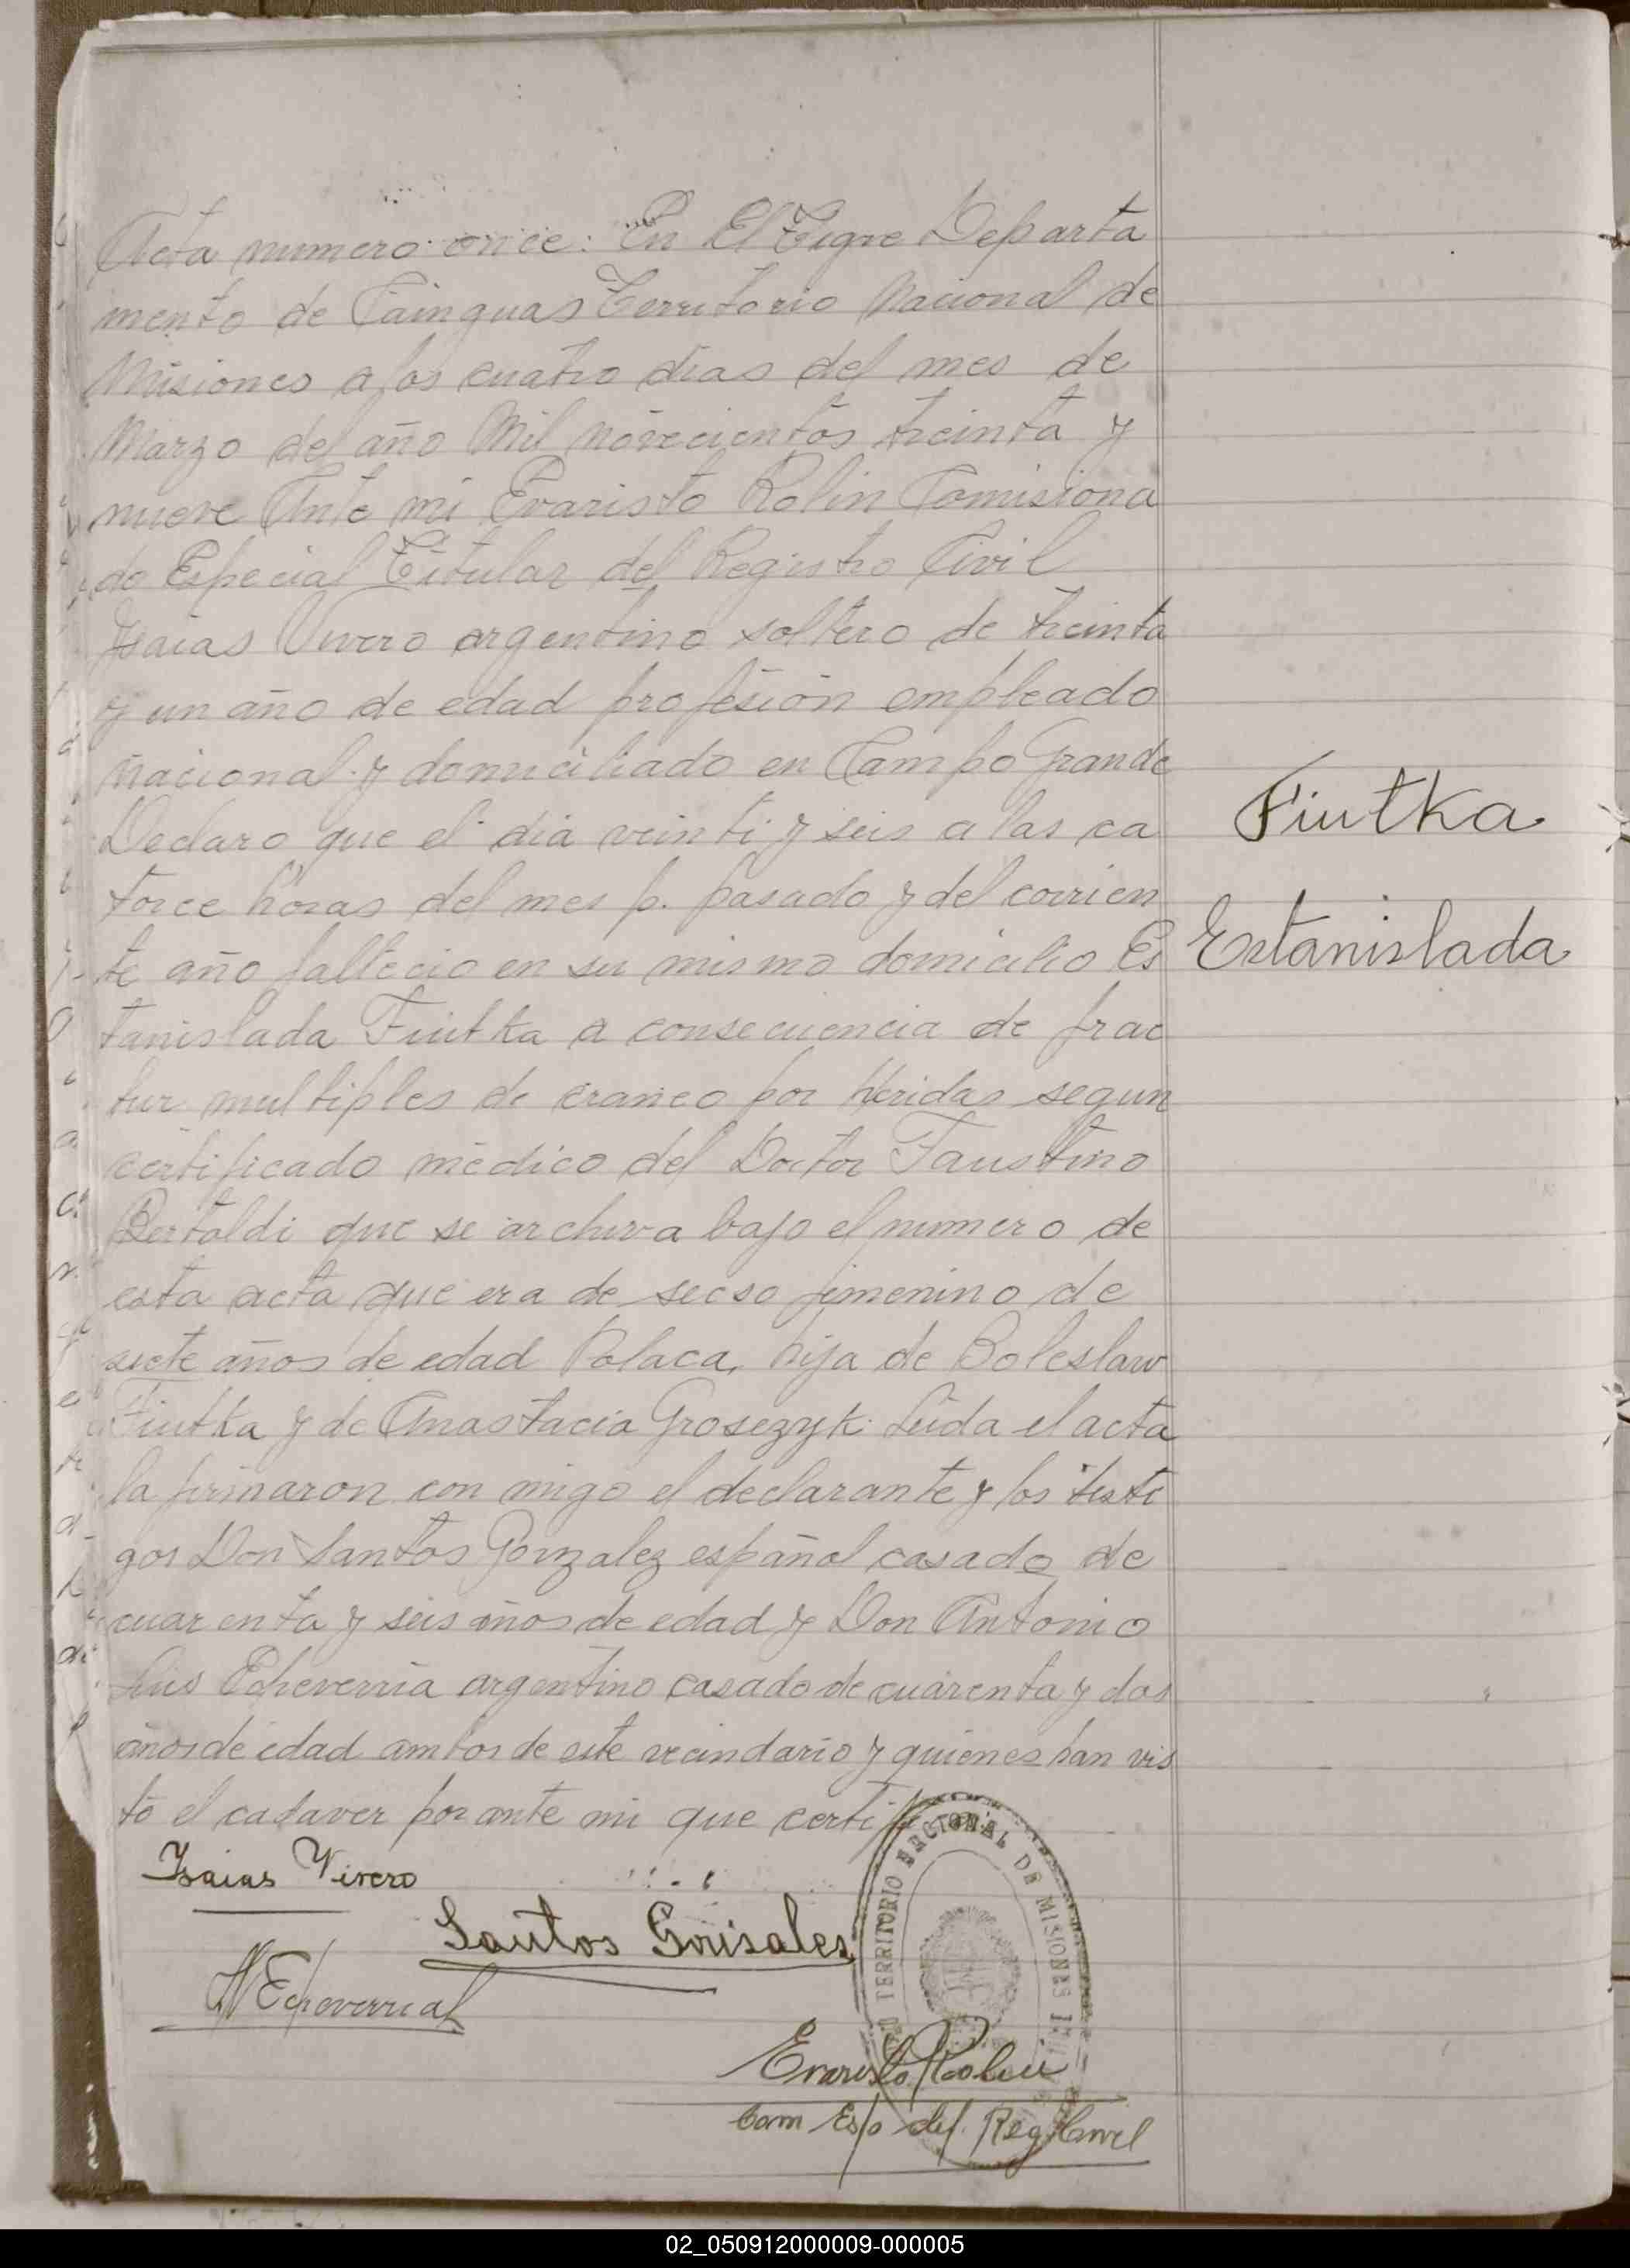 Acta numero once: En El Tigre Departa
mento de Cainguas Territorio Nacional de
Misiones a los cuatro dias del mes de
Marzo del año Mil novecientos treinta y
nueve Ante mi Evaristo Rolin Comisiona
do Especial Titular del Registro Civil
Isaias Vivero argentino soltero de treinta
y un año de edad profesión empleado
nacional y domiciliado en Campo Grande
Declaro que el dia veinti y seis a las ca
torce horas del mes p. pasado y del corrien
te año fallecio en su mismo domicilio Es
tanislada Fiutka a consecuencia de frac
tur multiples de craneo por heridas segun
certificado médico del Doctor Faustino
Bertoldi que se archiva bajo el numero de
esta acta que era de secso femenino de
siete años de edad Polaca, hija de Boleslaw
Fiutka y de Anastacia Grosezyk. Leida el acta
la firmaron con migo el declarante y los testi
gos Don Santos Gonzalez español casado de
cuarenta y seis años de edad y Don Antonio
Luis Echeverria argentino casado de cuarenta y dos
años de edad ambos de este vecindario y quienes han vis
to el cadaver por ante mi que certi
Fiutka
Estanislada
Isaias Vivero
Santos Gonsales
Echeverria
TERRITORIO NACIONAL DE MISIONES
Evaristo Rolin
Com Esp del Reg Civil
02_050912000009-000005